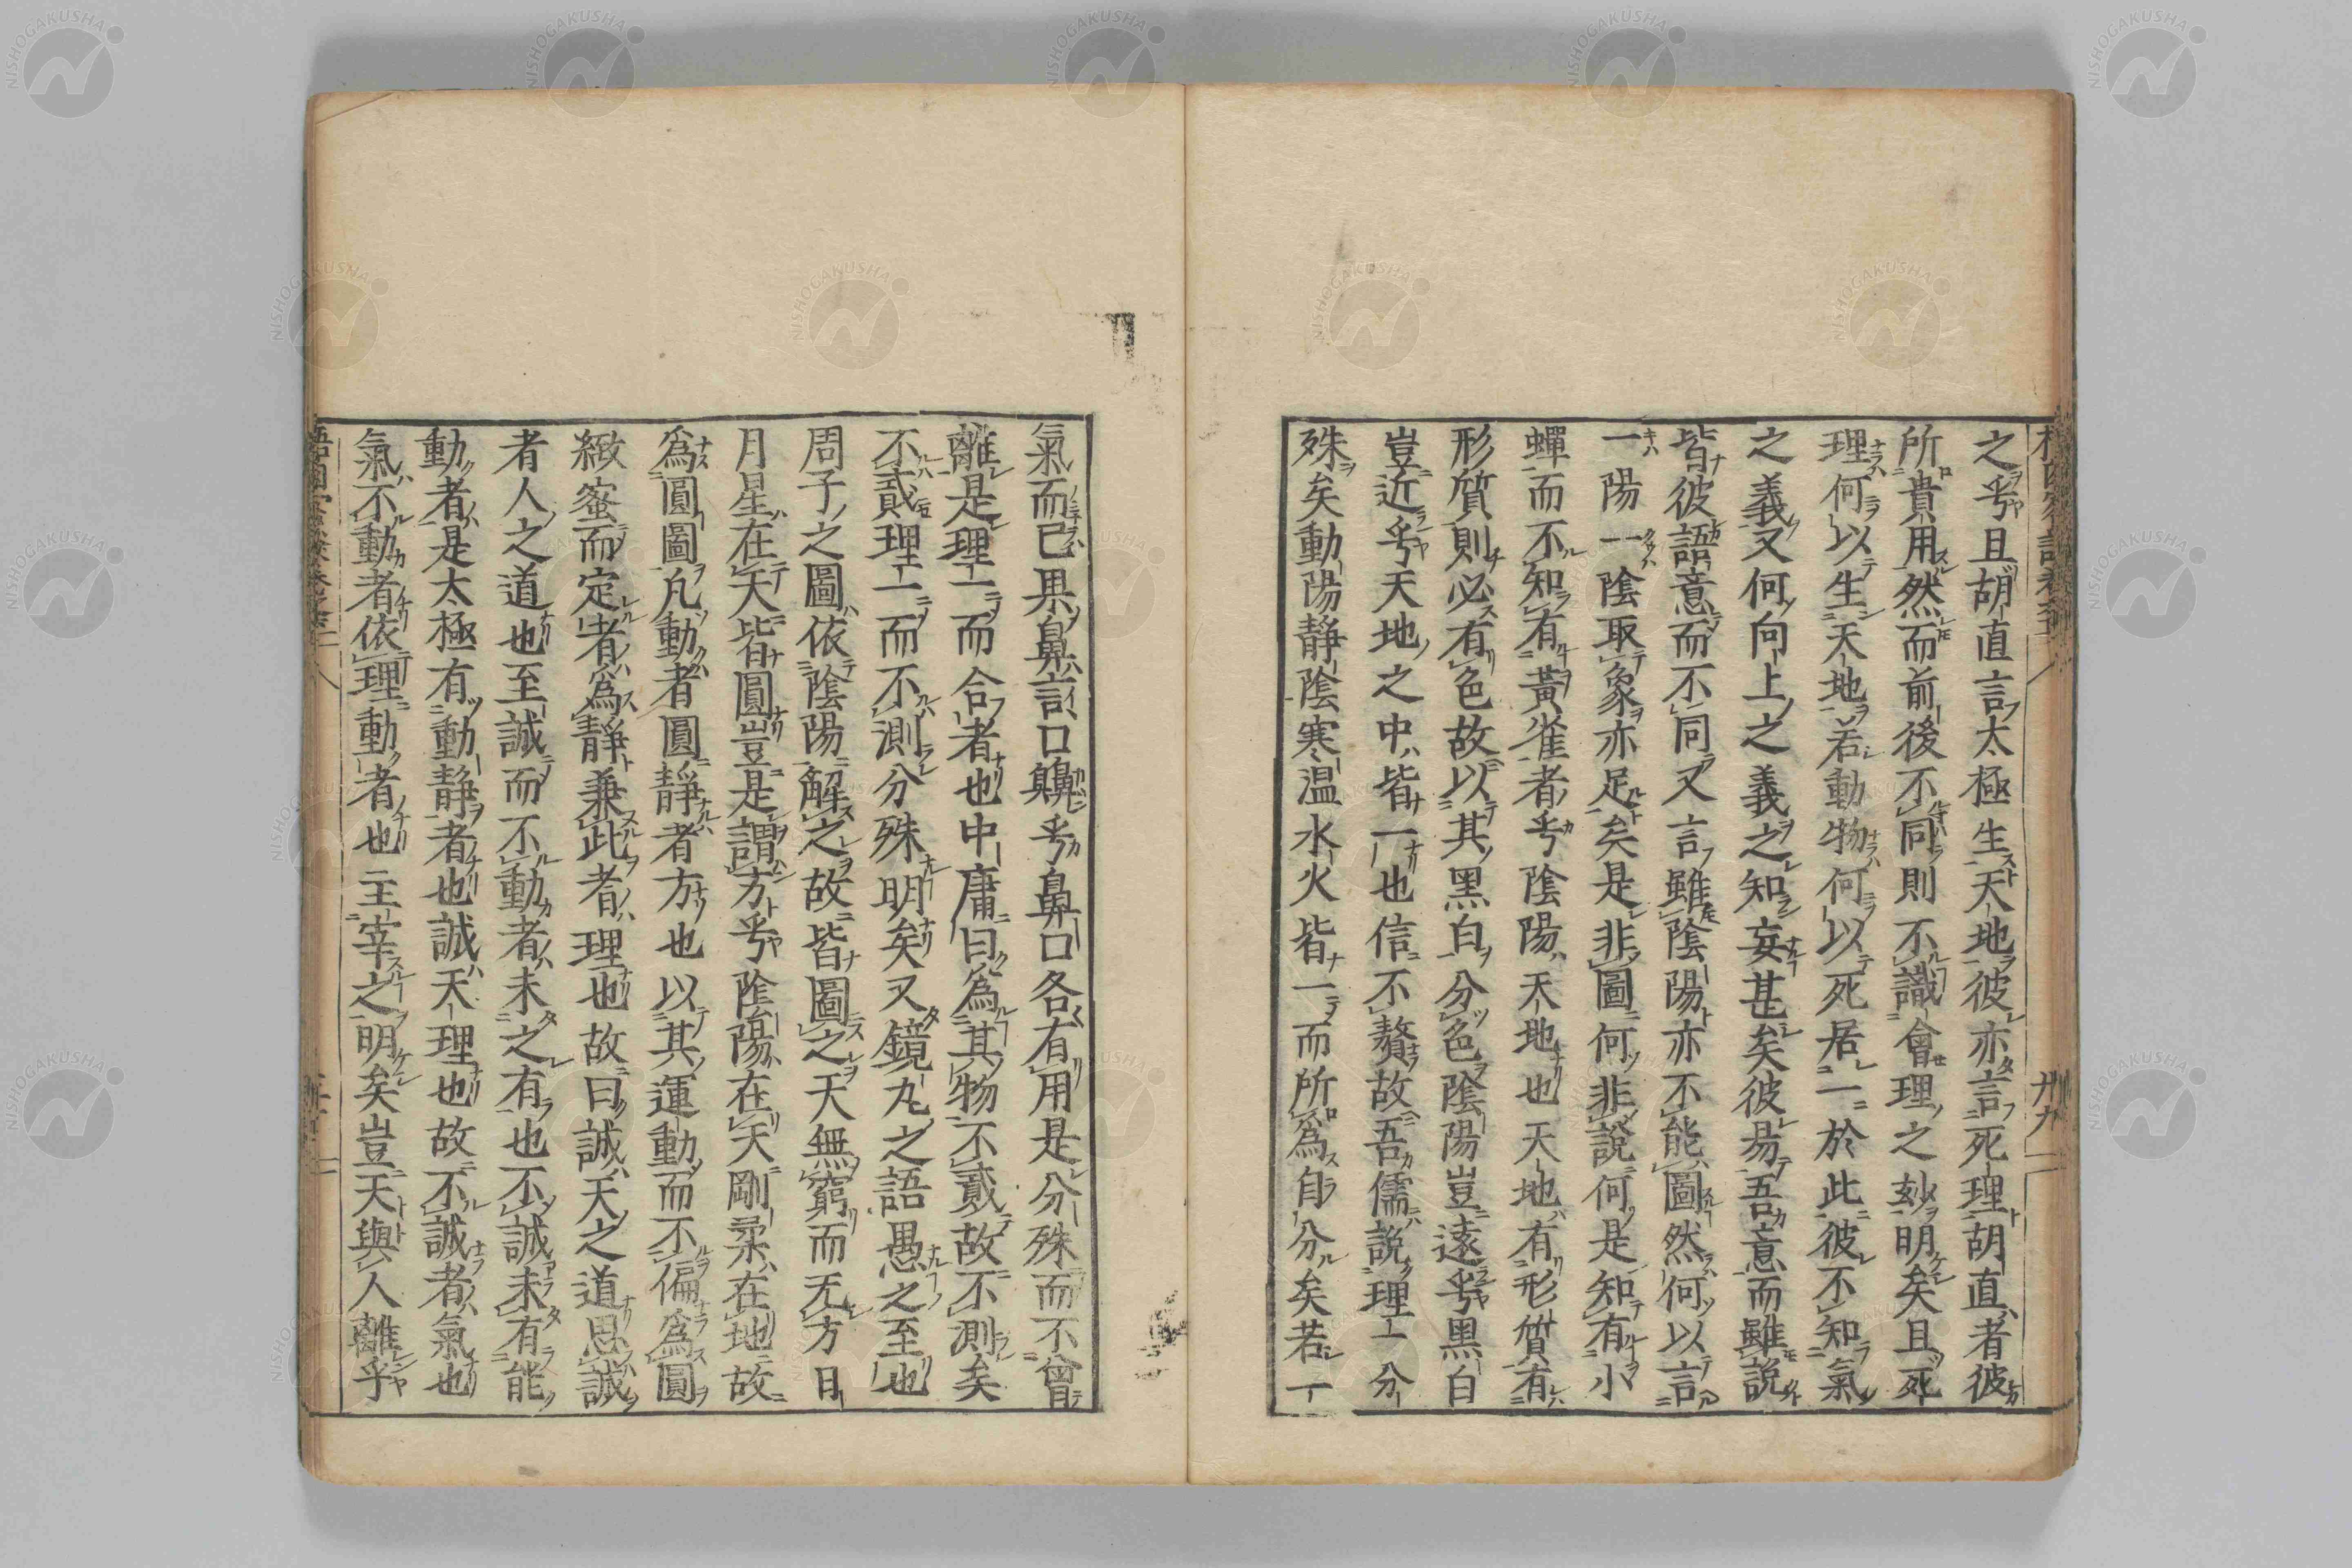 之乎且胡直言太極生天地彼亦言死理胡直者彼
所貴用然而前後不同則不識會理之玅明矣且死
理何以生天地若動物何以死居一於此彼不知氣
之義又何向上之義之知妄甚矣彼易吾意而雖說
皆彼語意而不同又言雖陰陽亦不能圖然何以言
一陽一陰取象亦足矣是非圖何非說何是知有小
蟬而不知有黃雀者乎陰陽天地也天地有形質有
形質則必有色故以其黑白分色陰陽豈遠乎黑白
豈近乎天地之中皆一也信不贅故吾儒說理一分
殊矣動陽靜陰寒溫水火皆一而所為自分矣若一
氣而已果鼻言口齅乎鼻口各有用是分殊而不曾
離是理一而合者也中庸曰為其物不貳故不測矣
不貳理一而不測分殊明矣又鏡丸之語愚之至也
周子之圖依陰陽解之故皆圖之天無窮而无方日
月星在天皆圓豈是謂方乎陰陽在天剛柔在地故
為圓圖凡動者圓靜者方也以其運動而不偏為圓
緻蜜而定者為靜兼此者理也故曰誠天之道思誠
者人之道也至誠而不動者未之有也不誠未有能
動者是太極有動靜者也誠天理也故不誠者氣也
氣不動者依理動者也主宰之明矣豈天與人離乎
NISHOGAKUSHA